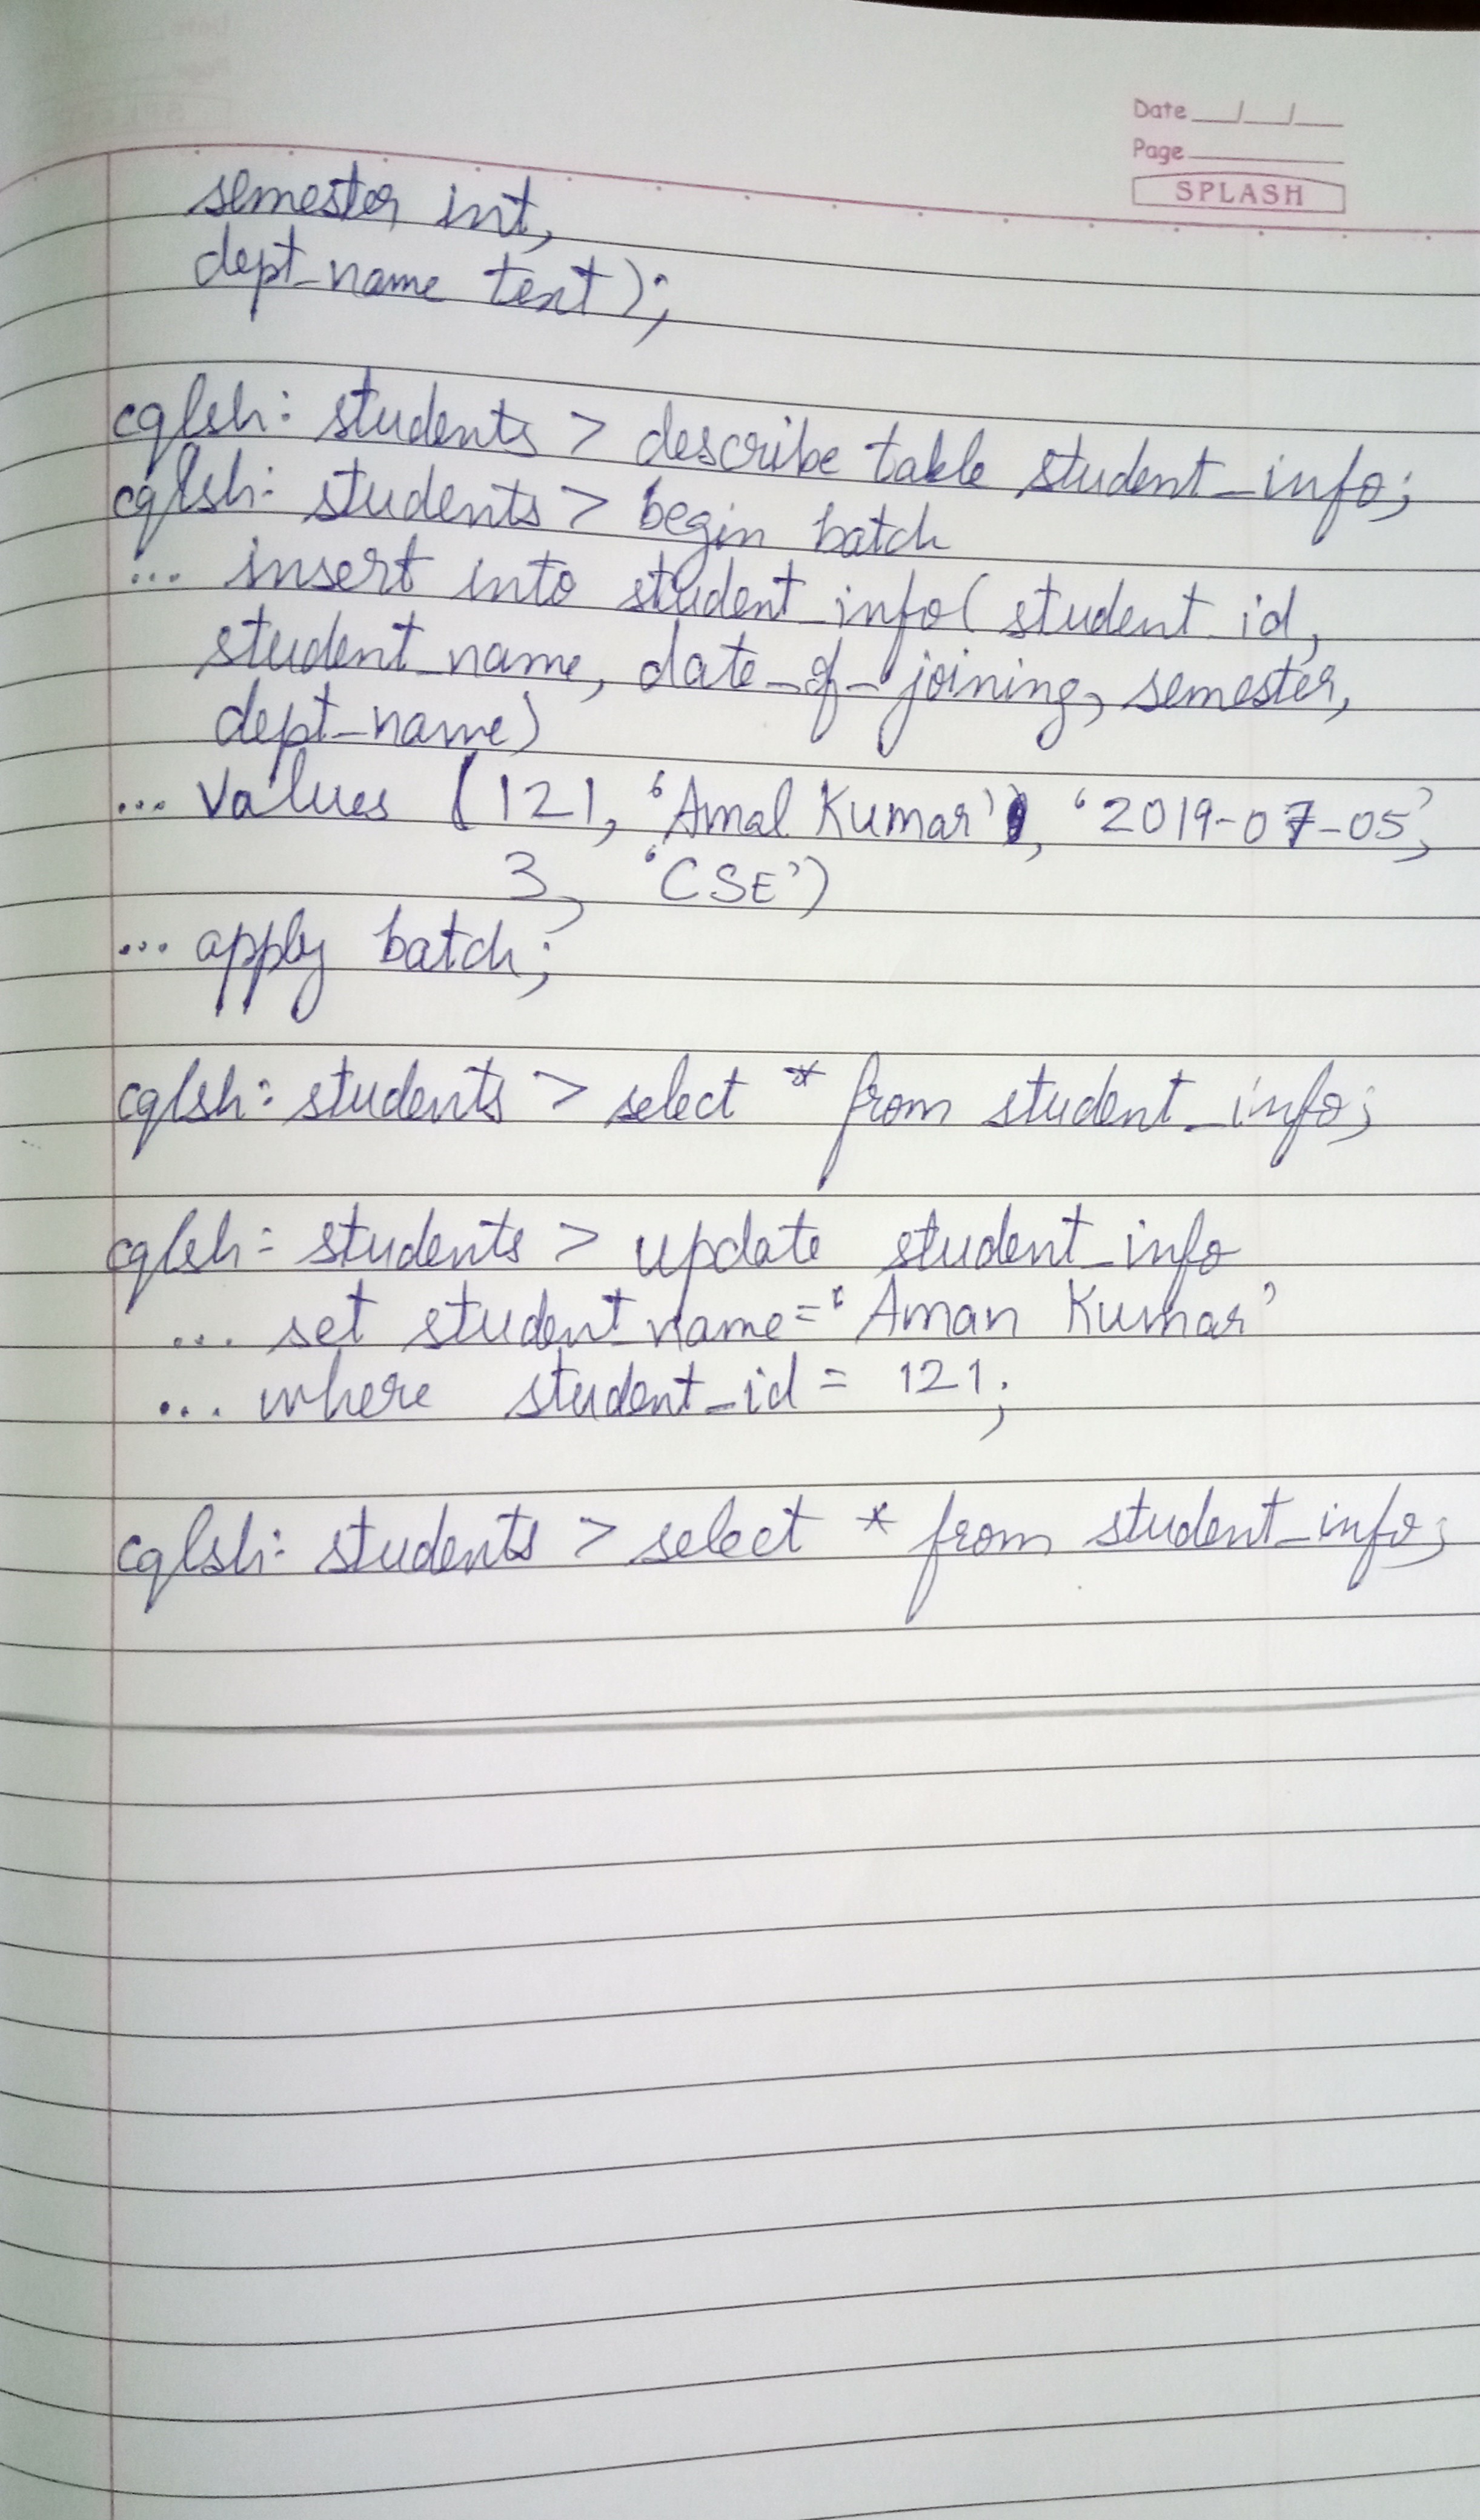 Date __/__/__
Page
SPLASH
semester int,
dept_name text);
cqlsh: students > describe table student_info;
cqlsh: students > begin batch
... insert into student_info( student_id,
student_name, date_of_joining, semester,
dept_name)
... values (121, 'Amal Kumar', '2019-07-05',
3, 'CSE')
... apply batch;
cqlsh: students > select * from student_info;
cqlsh: students > update student_info
... set student_name = 'Aman Kumar'
... where student_id = 121;
cqlsh: students > select * from student_info;